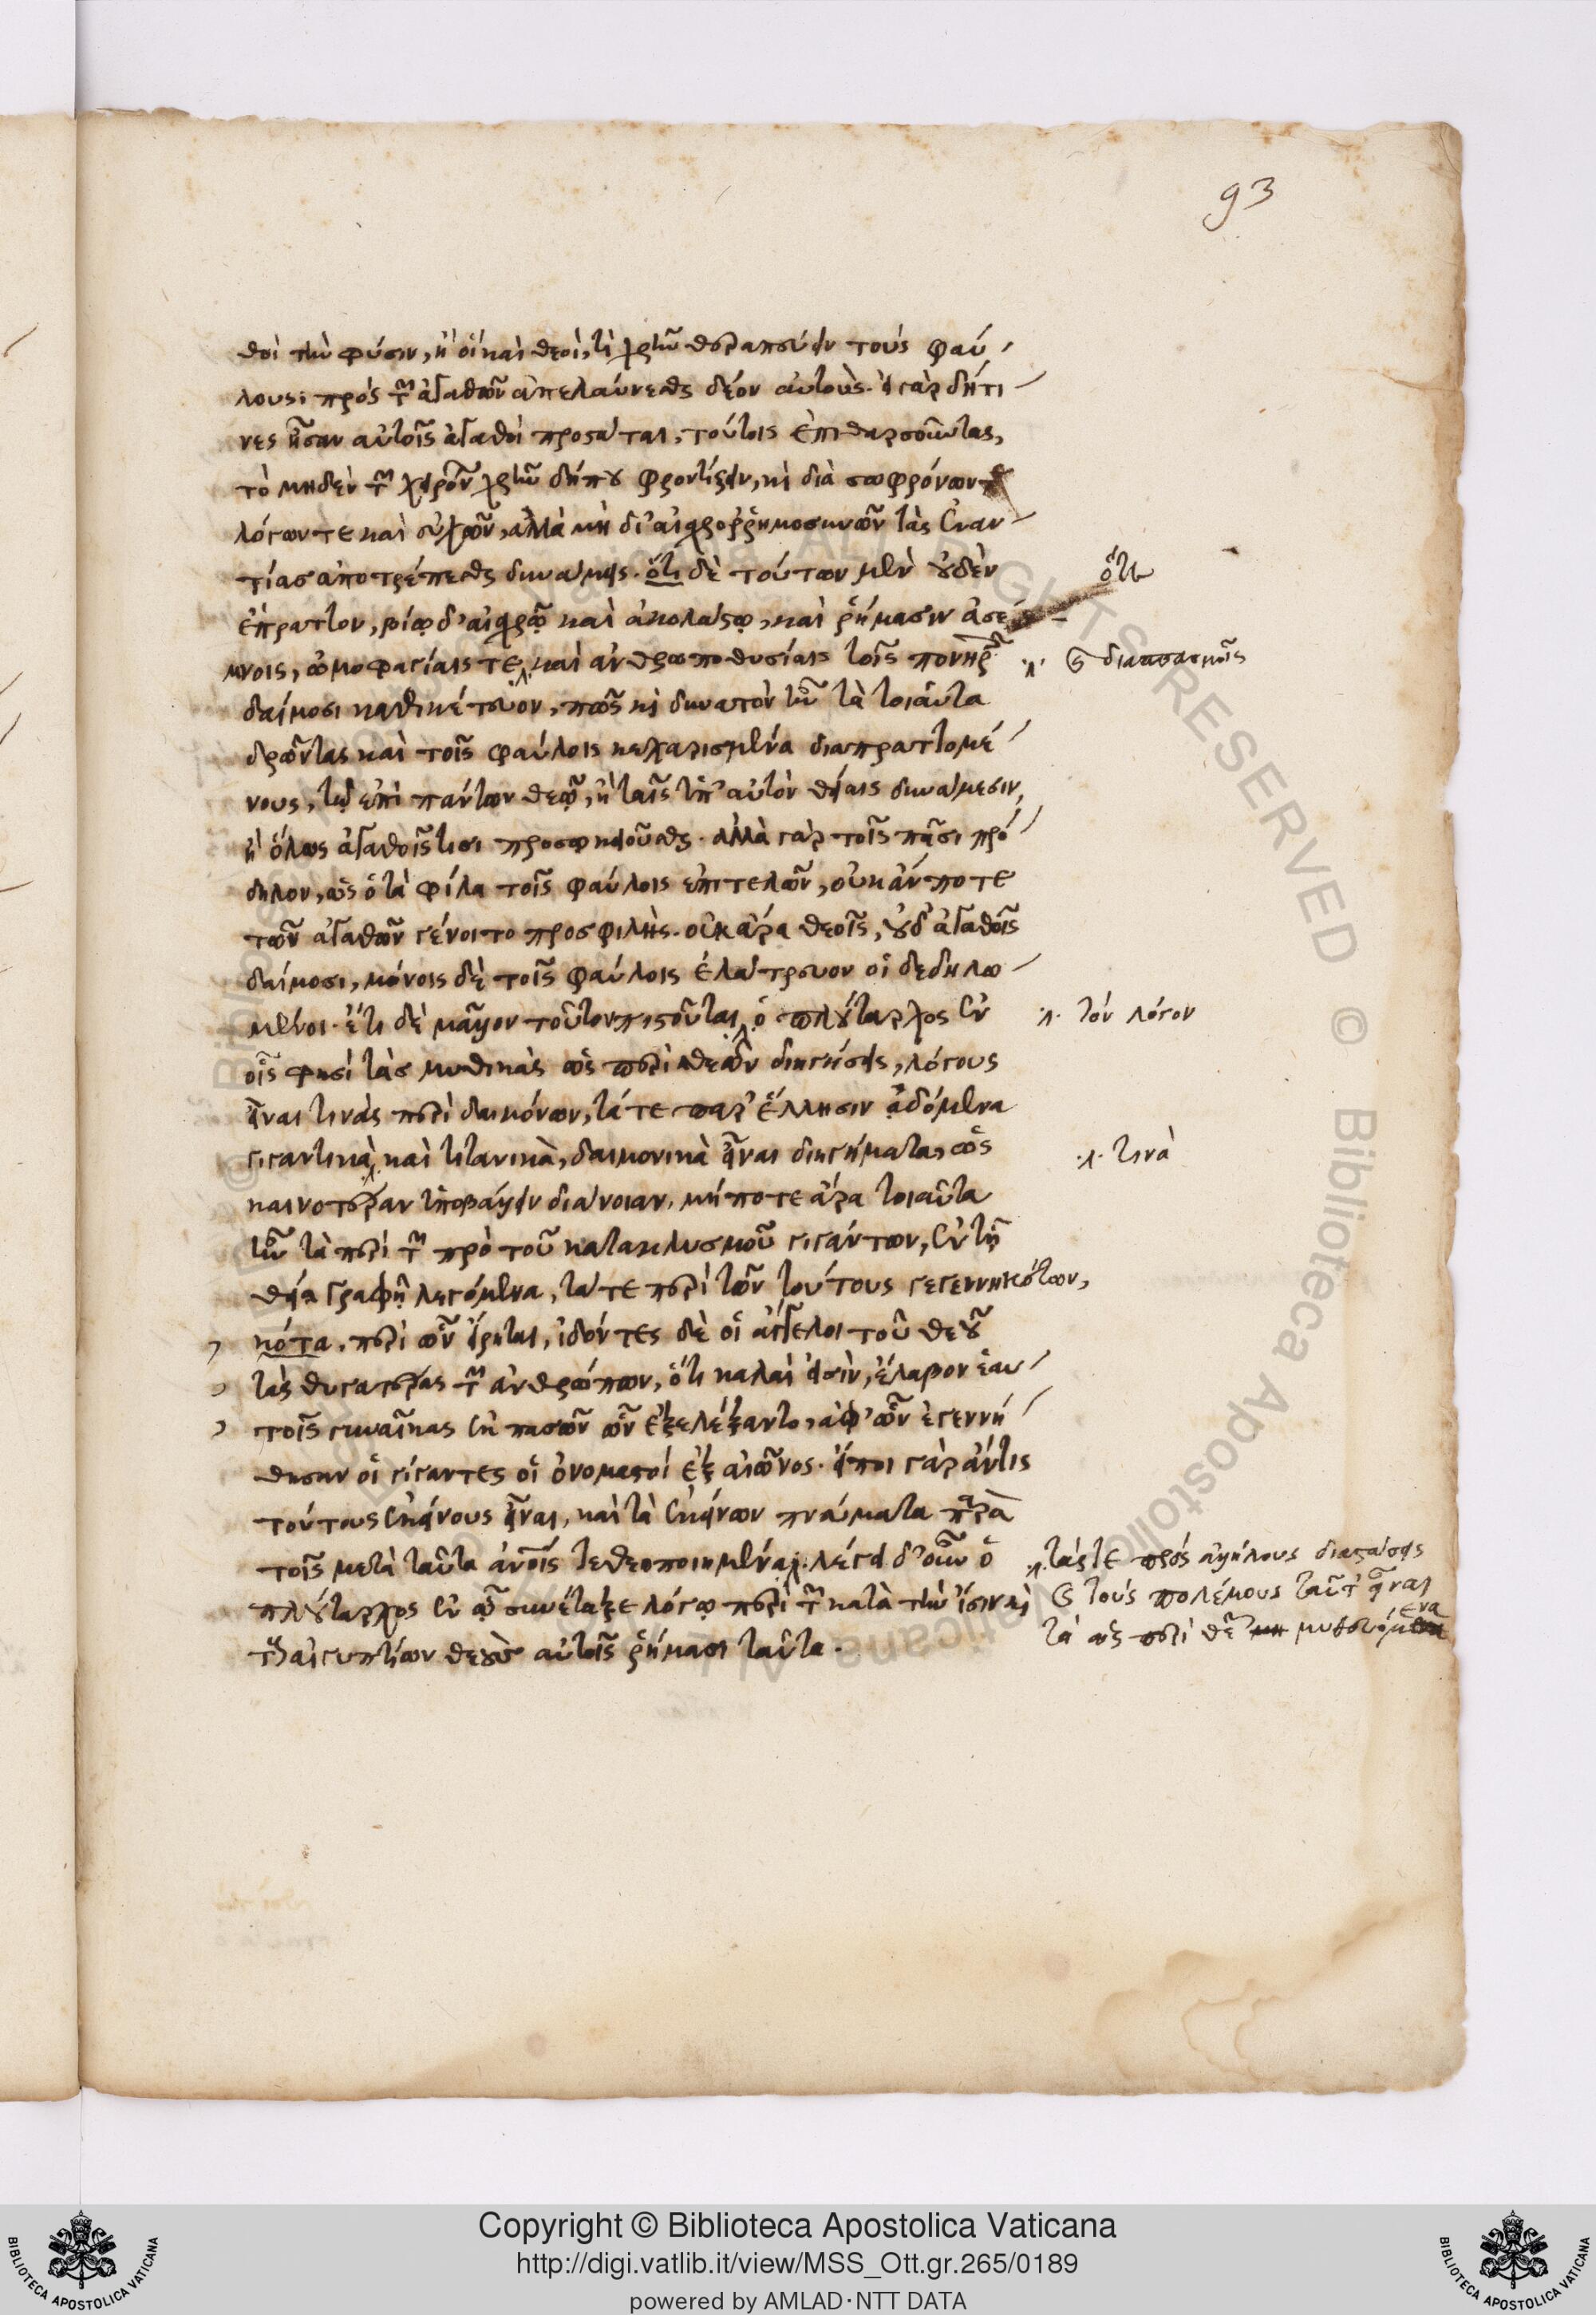 93
θοὶ τὴν φύσιν, ἢ οἵ καὶ θεοὶ, τί χρῆν θεραπεύειν τοὺς φαύ-
λους; πρὸς τῶν ἀγαθῶν ἀπελαύνεσθαι δέον αὐτούς. εἰ γὰρ δή τι-
νες ἦσαν αὐτοῖς ἀγαθοὶ προστάται, τούτοις ἐπιθαρσοῦντας,
τὸ μηδὲν τῶν χειρόνων χρῆν δήπου φροντίζειν, καὶ διὰ σωφρόνων
λόγων τε καὶ εὐχῶν, ἀλλὰ μὴ δι' αἰσχρορρημοσυνῶν τὰς ἐναν-
τίας ἀποτρέπεσθαι δυνάμεις. ὅτι δὲ τούτων μὲν οὐδὲν
ὅτε
ἔπραττον, βίῳ δ' αἰσχρῷ καὶ ἀκολάστῳ, καὶ ῥήμασιν ἀσέ-
μνοις, ὠμοφαγίαις τε, καὶ ἀνθρωποθυσίαις τοῖς πονηροῖς
.λ. καὶ διασπασμοῖς
δαίμοσι καθικέτευον, πῶς καὶ δυνατὸν ἦν τὰ τοιαῦτα
δρῶντας καὶ τοῖς φαύλοις κεχαρισμένα διαπραττομέ-
νους, τῷ ἐπὶ πάντων θεῷ, ἢ ταῖς ὑπ' αὐτὸν θείαις δυνάμεσιν,
ἢ ὅλως ἀγαθοῖς τισι προσῳκειοῦσθαι. ἀλλὰ γὰρ τοῖς πᾶσι πρό-
δηλον, ὡς ὁ τὰ φίλα τοῖς φαύλοις ἐπιτελῶν, οὐκ ἄν ποτε
τῶν ἀγαθῶν γένοιτο προσφιλής. οὐκ ἄρα θεοῖς, οὐδ' ἀγαθοῖς
δαίμοσι, μόνοις δὲ τοῖς φαύλοις ἐλάτρευον οἱ δεδηλω-
μένοι. ἔτι δὲ μᾶλλον τοῦτον πιστοῦται, ὁ πλούταρχος ἐν
.λ. τὸν λόγον
οἷς φησὶ τὰς μυθικὰς ὡς περὶ θεῶν διηγήσεις, λόγους
εἶναι τινὰς περὶ δαιμόνων, τά τε παρ' ἕλλησιν ᾀδόμενα
γιγαντικὰ, καὶ τιτανικὰ, δαιμονικὰ εἶναι διηγήματα, ὡς
.λ. τινὰ
καινοτέραν ὑποβάλλειν διάνοιαν. μήποτε ἄρα τοιαῦτα
ἦν τὰ περὶ τῶν πρὸ τοῦ κατακλυσμοῦ γιγάντων, ἐν τῇ
θείᾳ γραφῇ λεγόμενα, τά τε περὶ τῶν τούτους γεγεννηκότων,
κότα. περὶ ὧν εἴρηται, ἰδόντες δὲ οἱ ἄγγελοι τοῦ θεοῦ
τὰς θυγατέρας τῶν ἀνθρώπων, ὅτι καλαί εἰσιν, ἔλαβον ἑαυ-
τοῖς γυναῖκας ἐκ πασῶν ὧν ἐξελέξαντο, ἀφ' ὧν ἐγεννή-
θησαν οἱ γίγαντες οἱ ὀνομαστοὶ ἐξ αἰῶνος. εἴποι γὰρ ἄν τις
τούτους ἐκείνους εἶναι, καὶ τὰ ἐκείνων πνεύματα παρὰ
τοῖς μετὰ ταῦτα ἀνοις τεθεοποιημένα. λέγει δ' οὖν ὁ
.λ. τάς τε πρὸς ἀλλήλους διαστάσεις
πλούταρχος ἐν ᾧ συνέταξε λόγῳ περὶ τῶν κατὰ τὴν ἴσιν καὶ
καὶ τοὺς πολέμους ταῦτ' εἶναι
τοὺς αἰγυπτίων θεοὺς αὐτοῖς ῥήμασι ταῦτα.
τὰ ὡς περὶ θεῶν μυθευόμενα
Copyright © Biblioteca Apostolica Vaticana
http://digi.vatlib.it/view/MSS_Ott.gr.265/0189
powered by AMLAD·NTT DATA